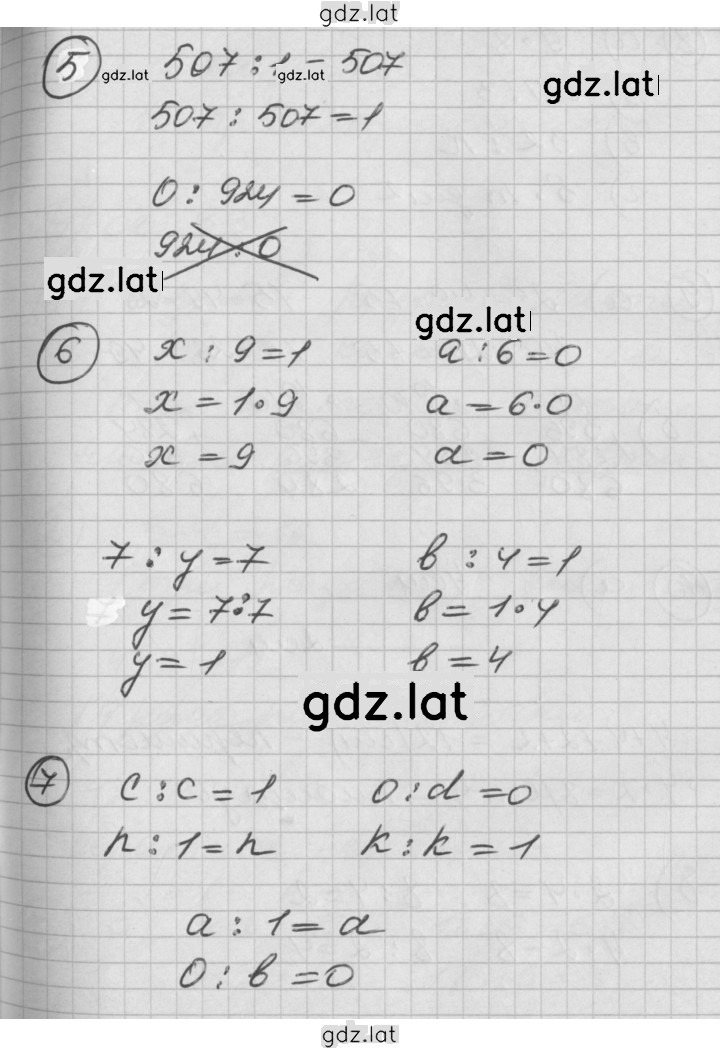 gdz.lat
5 gdz.lat 507 : 1 gdz.lat = 507
gdz.lat
507 : 507 = 1
0 : 924 = 0
924 : 0
gdz.lat
gdz.lat
6 x : 9 = 1 a : 6 = 0
x = 1 · 9 a = 6 · 0
x = 9 a = 0
7 : y = 7 в : 4 = 1
y = 7 : 7 в = 1 · 4
y = 1 в = 4
gdz.lat
7 c : c = 1 0 : d = 0
n : 1 = n k : k = 1
a : 1 = a
0 : в = 0
gdz.lat